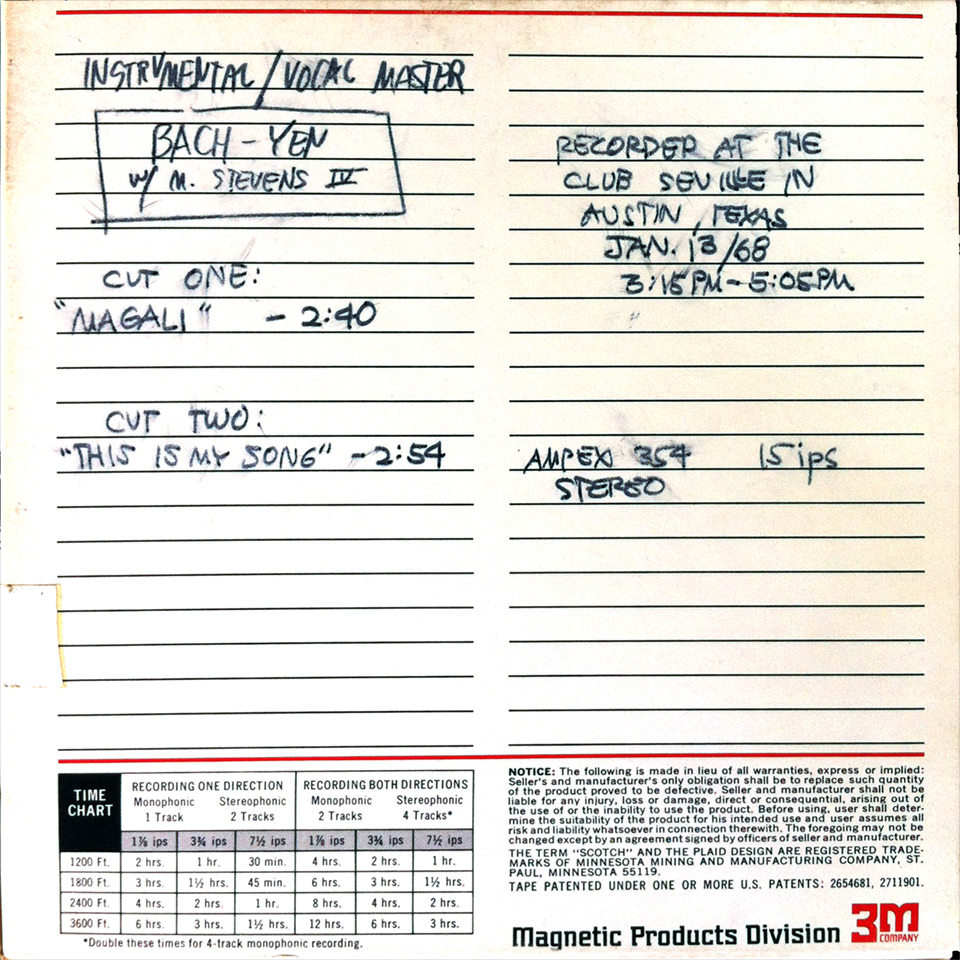 INSTRUMENTAL / VOCAL MASTER
BACH - YEN
W/ M. STEVENS IV
CUT ONE:
"MAGALI" - 2:40
CUT TWO:
"THIS IS MY SONG" - 2:54
RECORDER AT THE
CLUB SEVILLE IN
AUSTIN, TEXAS
JAN. 13/68
3:15PM - 5:05PM
AMPEX 354 15 ips
STEREO
TIME CHART
RECORDING ONE DIRECTION RECORDING BOTH DIRECTIONS
Monophonic Stereophonic Monophonic Stereophonic
1 Track 2 Tracks 2 Tracks 4 Tracks*
1⅞ ips 3¾ ips 7½ ips 1⅞ ips 3¾ ips 7½ ips
1200 Ft. 2 hrs. 1 hr. 30 min. 4 hrs. 2 hrs. 1 hr.
1800 Ft. 3 hrs. 1½ hrs. 45 min. 6 hrs. 3 hrs. 1½ hrs.
2400 Ft. 4 hrs. 2 hrs. 1 hr. 8 hrs. 4 hrs. 2 hrs.
3600 Ft. 6 hrs. 3 hrs. 1½ hrs. 12 hrs. 6 hrs. 3 hrs.
*Double these times for 4-track monophonic recording.
NOTICE: The following is made in lieu of all warranties, express or implied:
Seller's and manufacturer's only obligation shall be to replace such quantity
of the product proved to be defective. Seller and manufacturer shall not be
liable for any injury, loss or damage, direct or consequential, arising out of
the use of or the inability to use the product. Before using, user shall deter-
mine the suitability of the product for his intended use and user assumes all
risk and liability whatsoever in connection therewith. The foregoing may not be
changed except by an agreement signed by officers of seller and manufacturer.
THE TERM "SCOTCH" AND THE PLAID DESIGN ARE REGISTERED TRADE-
MARKS OF MINNESOTA MINING AND MANUFACTURING COMPANY, ST.
PAUL, MINNESOTA 55119.
TAPE PATENTED UNDER ONE OR MORE U.S. PATENTS: 2654681, 2711901.
Magnetic Products Division 3M COMPANY